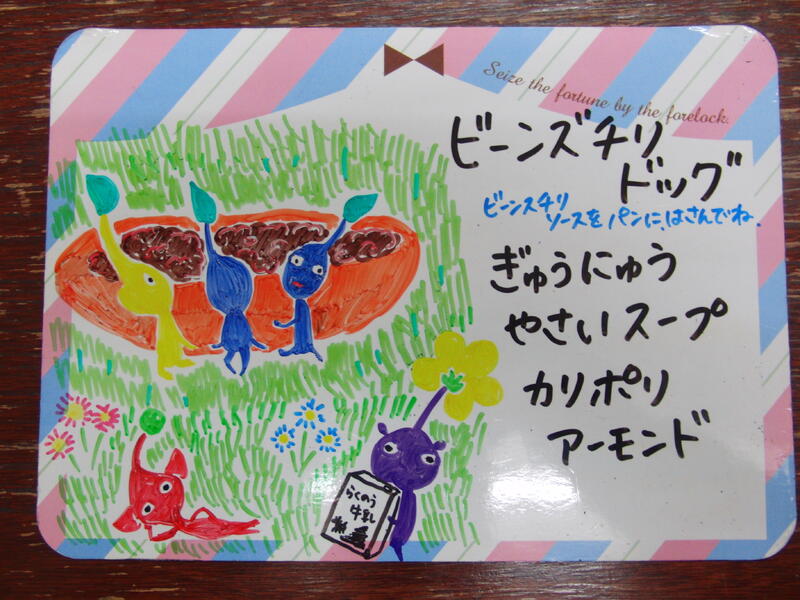 Seize the fortune by the forelock.
ビーンズチリ
ドッグ
ビーンズチリ
ソースをパンに、はさんでね.
ぎゅうにゅう
やさいスープ
カリポリ
アーモンド
らくのう
牛乳